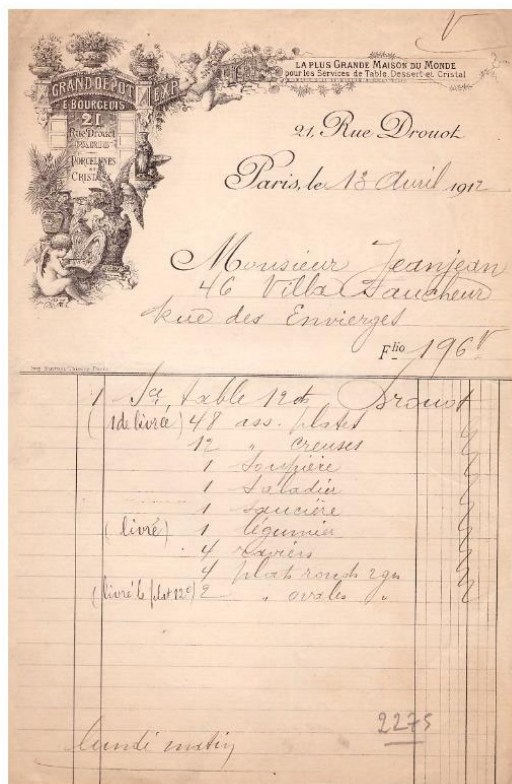 GRAND DEPOT
E. BOURGEOIS
21
Rue Drouot
PARIS
PORCELAINES
CRISTAUX
EXP
LA PLUS GRANDE MAISON DU MONDE
pour les Services de Table, Dessert et Cristal
21, Rue Drouot
Paris, le 13 Avril 1912
Monsieur Jeanjean
46 Villa Faucheur
Rue des Envierges
F^lio 196 V
1 Sce table 12 c Drouot
(1 de livrée) 48 ass. plates
12 " creuses
1 Soupière
1 Saladier
1 Saucière
(livré) 1 légumier
4 raviers
4 plats ronds 2 grs
(livré le plat 12c) 2 " ovales "
2275
lundi matin